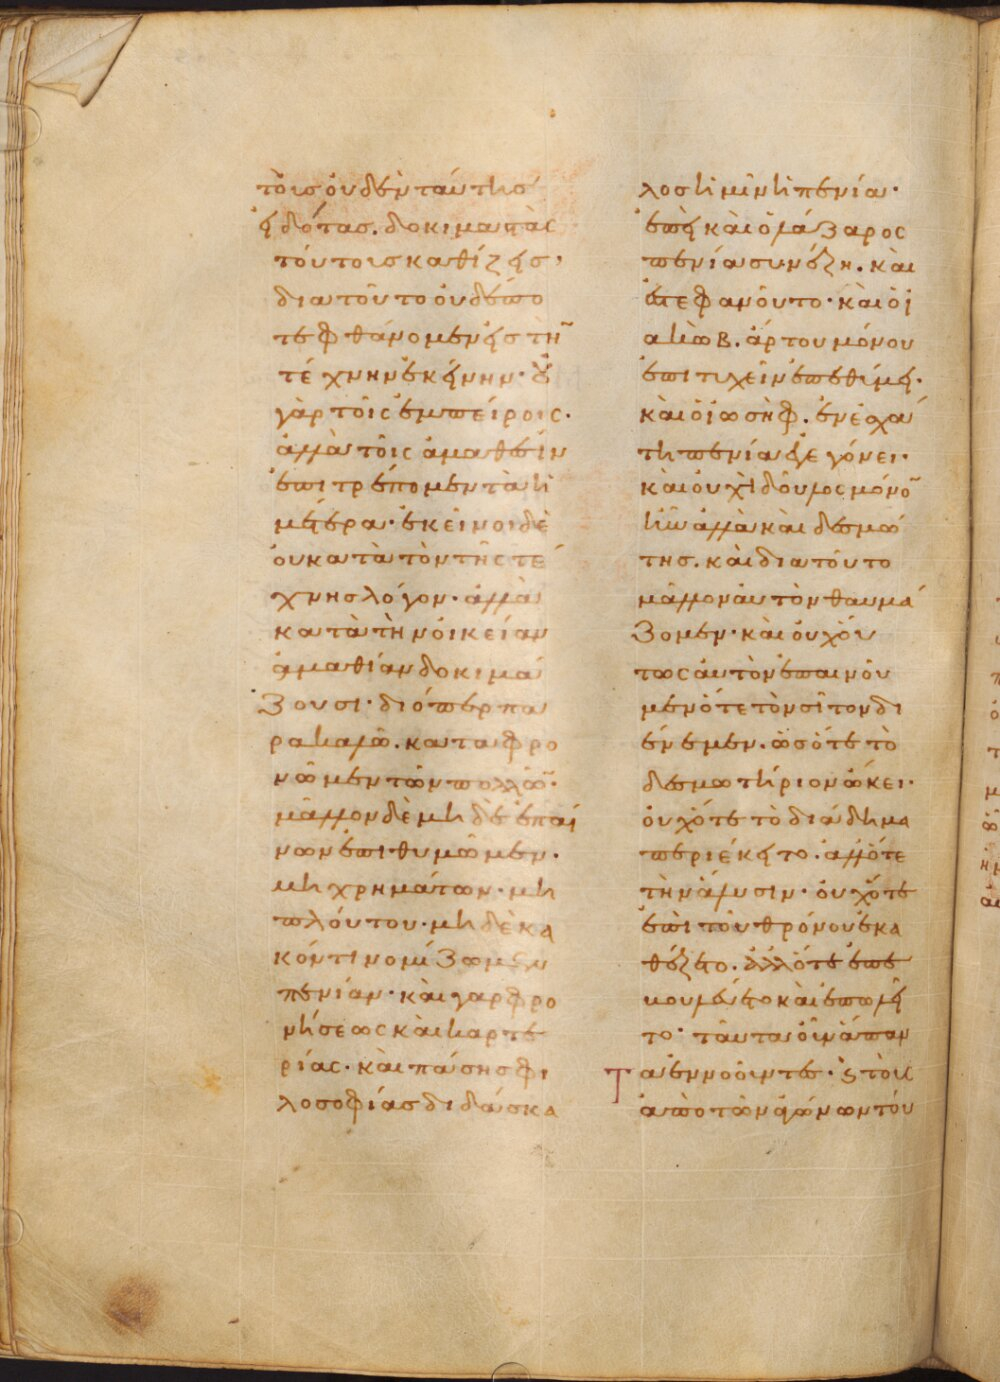 τοῖς οὐδὲν ταύτης
εἰδότας. δοκιμαστὰς
τούτοις καθίζεις·
διὰ τοῦτο οὐδέπο
τε φθάνομεν εἰς τὴν
τέχνην ἐκείνην· οὐ
γὰρ τοῖς ἐμπείροις·
ἀλλὰ τοῖς ἀμαθέσιν
ἐπιτρέπομεν τὰ ἡ
μέτερα· ἐκεῖνοι δὲ
οὐ κατὰ τὸν τῆς τέ
χνης λόγον· ἀλλὰ
κατὰ τὴν οἰκείαν
ἀμαθίαν δοκιμά
ζουσι· διόπερ πα
ρακαλῶ. καταφρο
νῶμεν τῶν πολλῶν·
μᾶλλον δὲ μηδὲ ἐπαί
νων ἐπιθυμῶμεν·
μὴ χρημάτων· μὴ
πλούτου· μηδὲ κα
κόν τι νομίζωμεν
πενίαν· καὶ γὰρ φρο
νήσεως καὶ καρτε
ρίας· καὶ πάσης φι
λοσοφίας διδάσκα
λος ἡμῖν ἡ πενία·
ἐπεὶ καὶ ὁ λάζαρος
πενία συνέζη. καὶ
ἐστεφανοῦτο· καὶ ὁ ἰ
ακὼβ. ἄρτου μόνου
ἐπιτυχεῖν ἐπεθύμει·
καὶ ὁ ἰωσὴφ. ἐν ἐσχά
τη πενία γεγόνει·
καὶ οὐχὶ δοῦλος μόνον
ἦν ἀλλὰ καὶ δεσμώ
της. καὶ διὰ τοῦτο
μᾶλλον αὐτὸν θαυμά
ζομεν· καὶ οὐχ οὕ
τως αὐτὸν ἐπαινοῦ
μεν ὅτε τὸν σῖτον δι
ένεμεν. ὡς ὅτε τὸ
δεσμωτήριον ὤκει·
οὐχ ὅτε τὸ διάδημα
περιέκειτο. ἀλλ ὅτε
τὴν ἄλυσιν· οὐχ ὅτε
ἐπὶ τοῦ θρόνου ἐκα
θέζετο. ἀλλ ὅτε ἐπε
βουλεύετο καὶ ἐπωλεῖ
το· ταῦτα οὖν ἅπαν
τα ἐννοοῦντες· καὶ τοὺς
ἀπὸ τῶν ἀγώνων τού